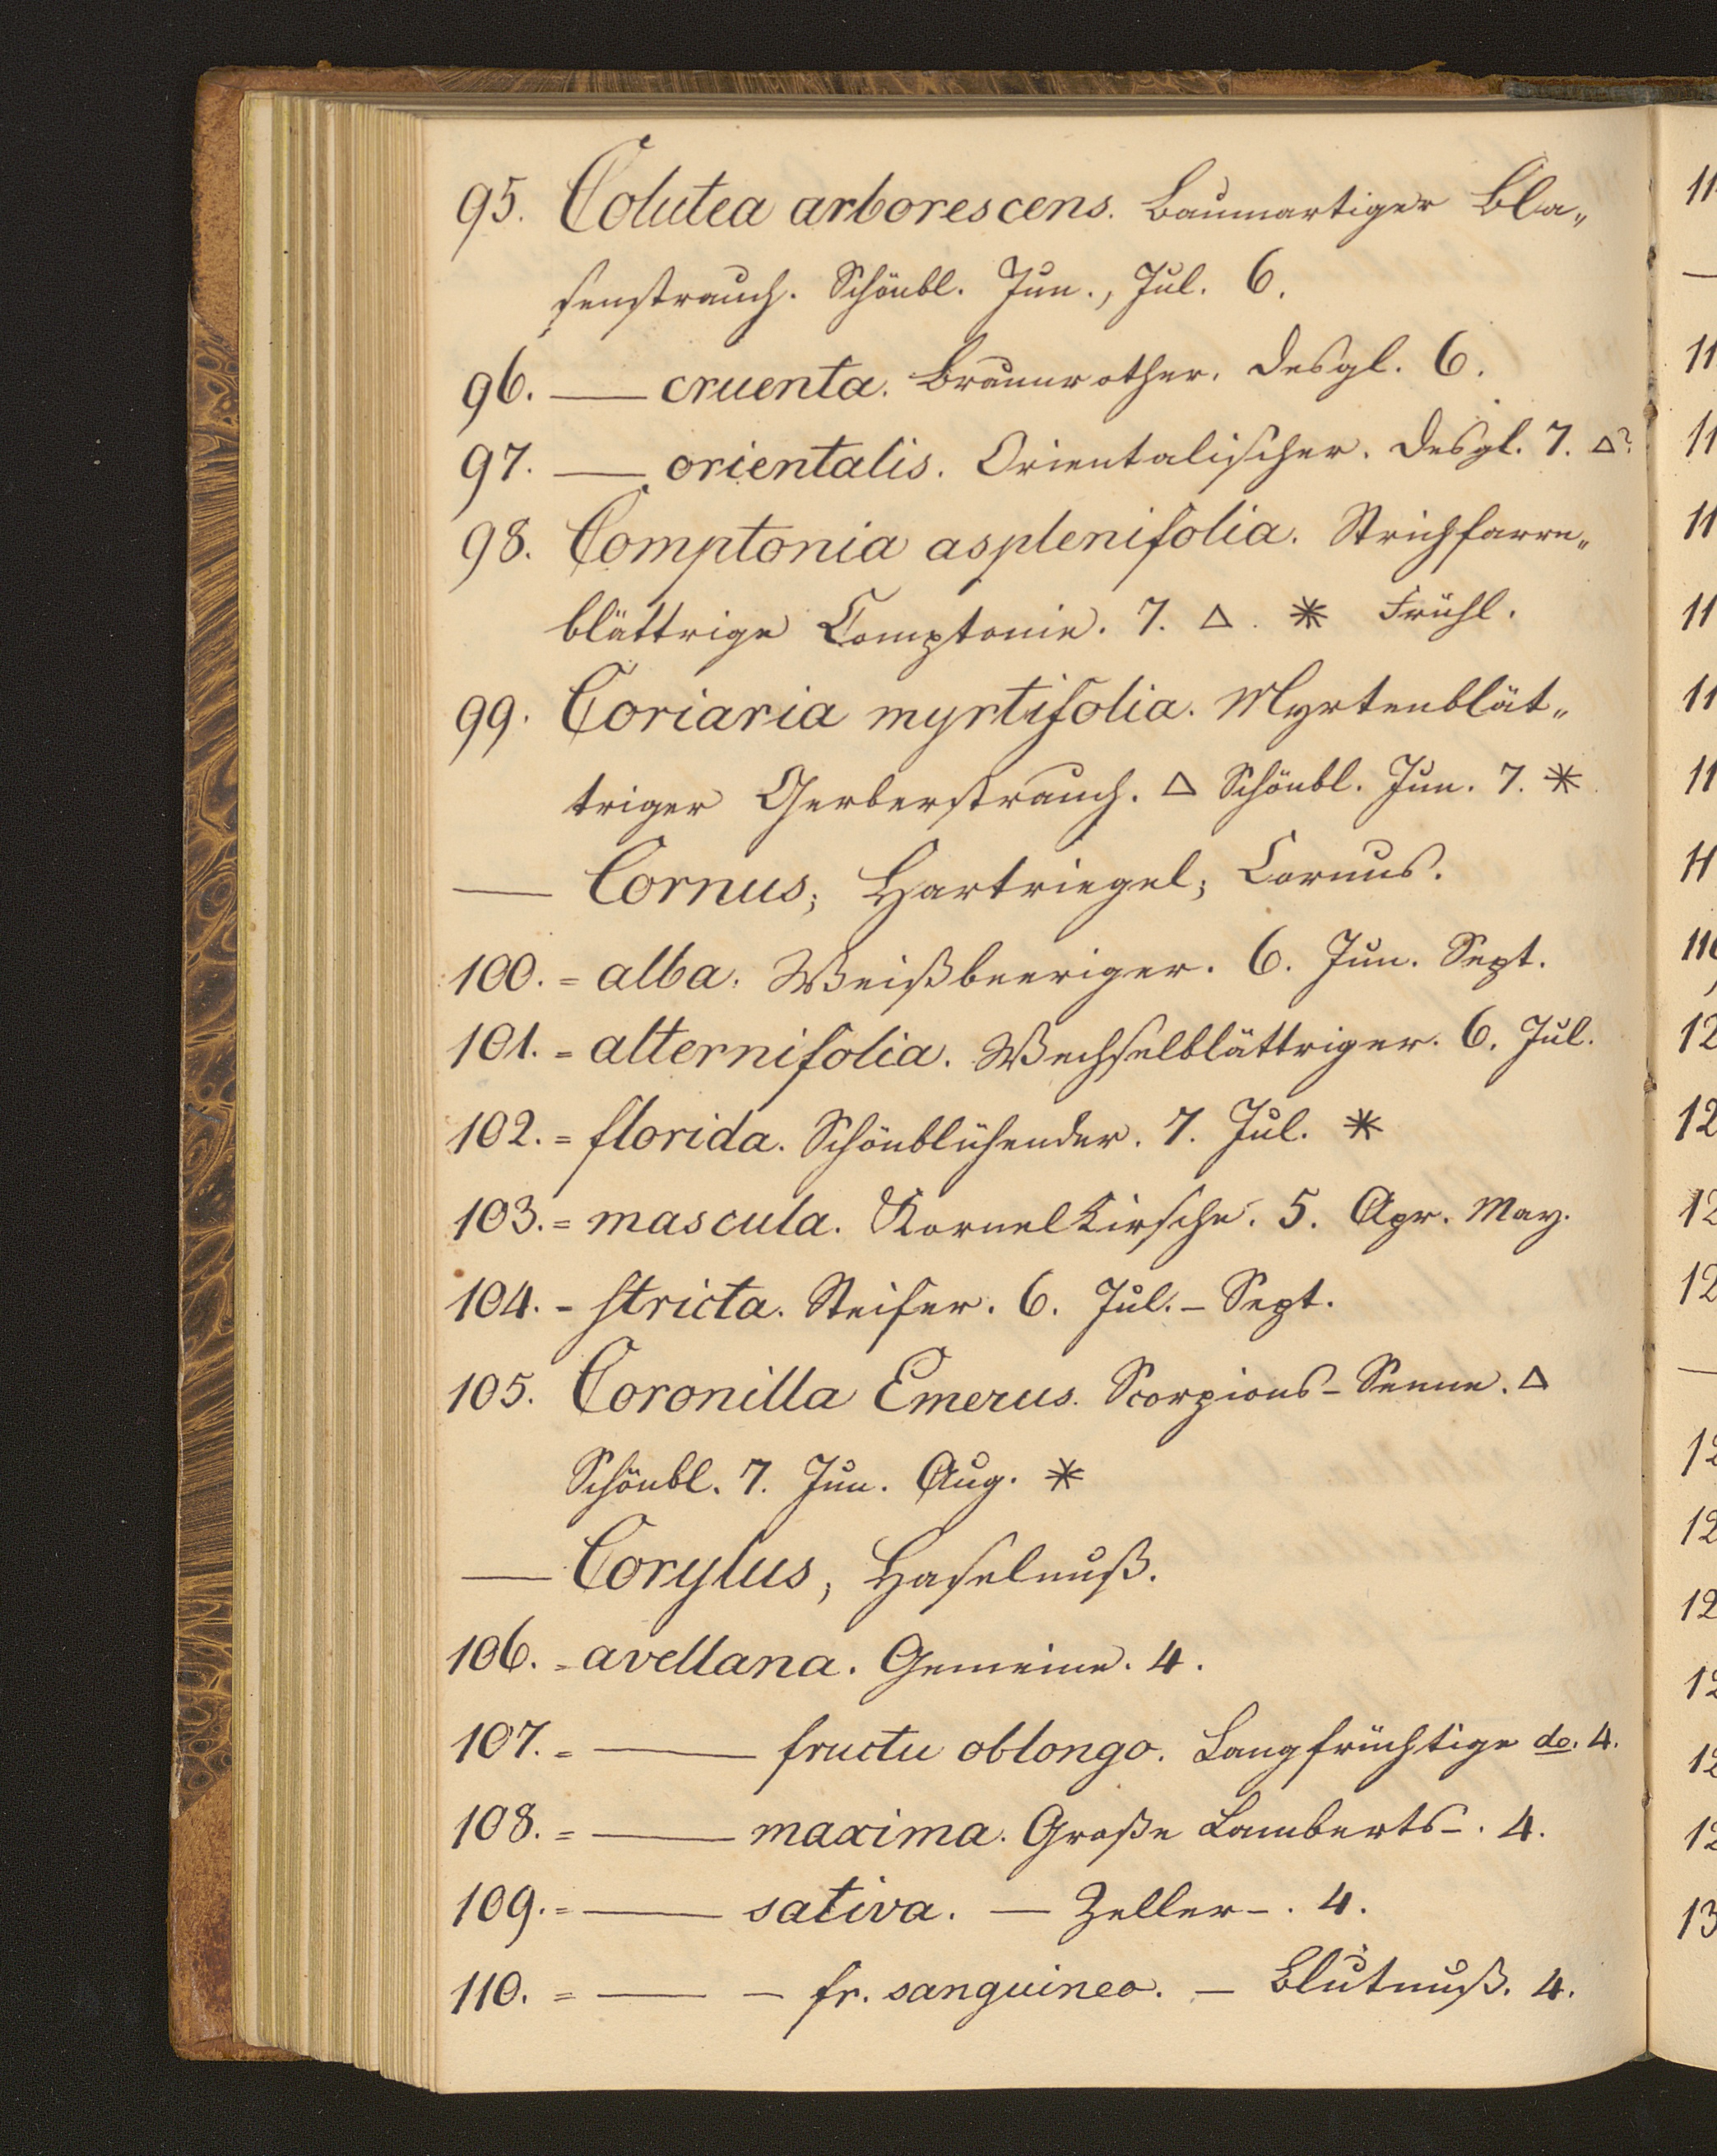 95. Colutea arborescens. Baumartiger Bla„
senstrauch. Schönbl. Jun., Jul. 6.
96. — cruenta. Braunrother. Desgl. 6.
97. — orientalis. Orientalischer. Desgl. 7. △?
98. Comptonia asplenifolia. Strichfarrn„
blättrige Comptonie. 7. △. * Frühl.
99. Coriaria myrtifolia. Myrtenblät„
triger Gerberstrauch. △ Schönbl. Jun. 7. *
— Cornus; Hartriegel; Cornus.
100. = alba. Weißbeeriger. 6. Jun. Sept.
101. = alternifolia. Wechselblättriger. 6. Jul.
102. = florida. Schönblühender. 7. Jul. *
103. = mascula. Kornelkirsche. 5. Apr. May.
104. - stricta. Steifer. 6. Jul. - Sept.
105. Coronilla Emerus. Scorpions-Senne. △
Schönbl. 7. Jun. Aug. *
— Corylus, Haselnuß.
106. = avellana. Gemeine. 4.
107. = — fructu oblongo. Langfrüchtige do. 4.
108. = — maxima. Große Lamberts-. 4.
109. = — sativa. — Zeller-. 4.
110. = — - fr. sanguineo. — Blutnuß. 4.